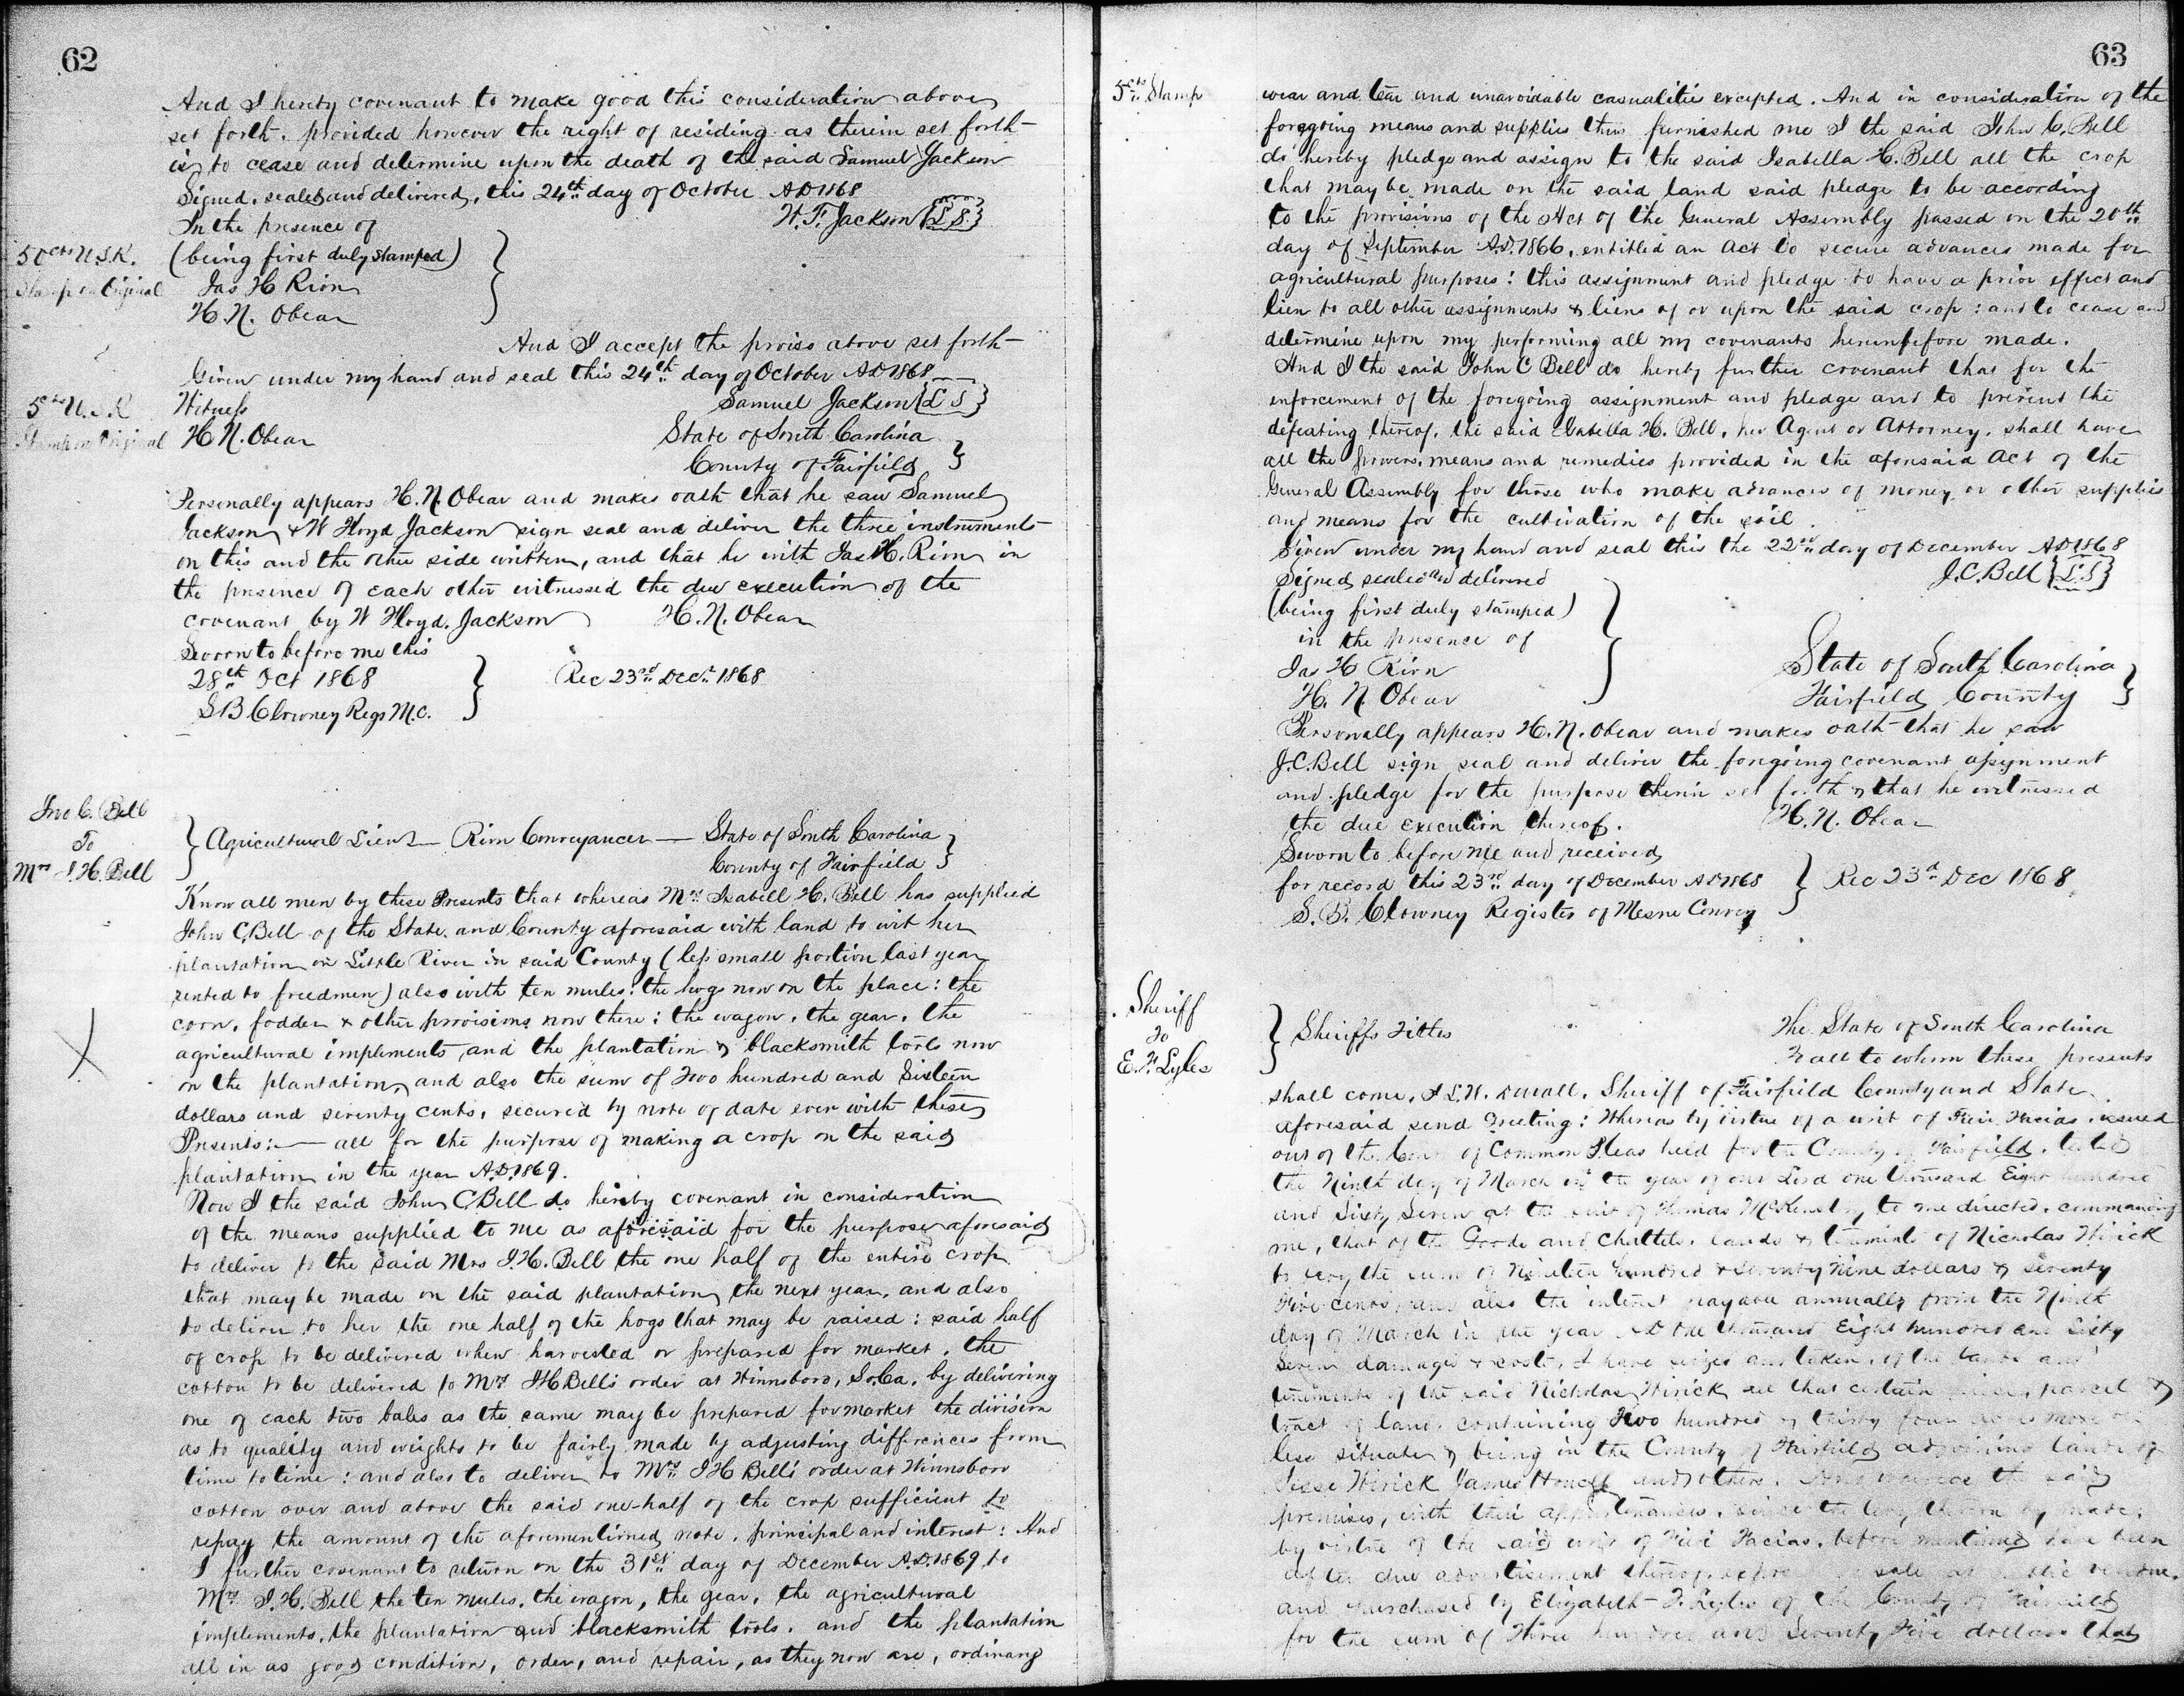 62
And I hereby covenant to make good this consideration above
set forth. provided however the right of residing as therein set forth
is to cease and determine upon the death of the said Samuel Jackson
Signed, sealed and delivered, this 24th day of October AD 1868
In the presence of
W. F. Jackson {L S}
50 cts U.S.R.
Stamp on Original
(being first duly stamped)
Jas H Rion
H. N. Obear
And I accept the proviso above set forth
Given under my hand and seal this 24th day of October AD 1868
5 cts U.S.R
Stamp on Original
Witness
Samuel Jackson {L S}
H N. Obear
State of South Carolina
County of Fairfield
Personally appears H. N. Obear and makes oath that he saw Samuel
Jackson & W Floyd Jackson sign seal and deliver the three instruments
on this and the other side written, and that he with Jas H. Rion in
the presence of each other witnessed the due execution of the
covenant by W Floyd. Jackson H. N. Obear
Sworn to before me this
28th Oct 1868
Rec 23rd Dec 1868
S B Clowney Regr M.C.
Jno C. Bell
To
Mrs I H. Bell
Agricultural Lien — Rion Conveyancer — State of South Carolina
County of Fairfield
Know all men by these Presents that whereas Mrs Isabell H. Bell has supplied
John C. Bell of the State and County aforesaid with land to wit her
plantation on Little River in said County (less small portion last year
rented to freedmen) also with ten mules: the hogs now on the place: the
corn, fodder & other provisions now there: the wagon, the gear, the
agricultural implements, and the plantation & blacksmith tools now
on the plantation, and also the sum of Two hundred and Sixteen
dollars and seventy cents, secured by note of date even with these
Presents: — all for the purpose of making a crop on the said
plantation in the year A.D. 1869.
Now I the said John C Bell do hereby covenant in consideration
of the means supplied to me as aforesaid for the purpose aforesaid
to deliver to the said Mrs I. H. Bell the one half of the entire crop
that may be made on the said plantation, the next year, and also
to deliver to her the one half of the hogs that may be raised: said half
of crop to be delivered when harvested or prepared for market, the
cotton to be delivered to Mrs I H Bell's order at Winnsboro, So. Ca. by delivering
one of each two bales as the same may be prepared for market the division
as to quality and weights to be fairly made by adjusting differences from
time to time: and also to deliver to Mrs I H Bell's order at Winnsboro
cotton over and above the said one-half of the crop sufficient to
repay the amount of the aforementioned note, principal and interest: And
I further covenant to return on the 31st day of December A.D. 1869, to
Mrs I. H. Bell the ten mules, the wagon, the gear, the agricultural
implements, the plantation and blacksmith tools. and the plantation
all in as good condition, order, and repair, as they now are, ordinary
63
5 cts Stamp
wear and tear and unavoidable casualities excepted. And in consideration of the
foregoing means and supplies thus furnished me I the said John C. Bell
do hereby pledge and assign to the said Isabella H. Bell all the crop
that may be made on the said land said pledge to be according
to the provisions of the Act of the General Assembly passed on the 20th
day of September A.D. 1866, entitled an act to secure advances made for
agricultural purposes: this assignment and pledge to have a prior effect and
lien to all other assignments & liens of or upon the said crop: and to cease and
determine upon my performing all my covenants hereinbefore made.
And I the said John C Bell do hereby further covenant that for the
enforcement of the foregoing assignment and pledge and to prevent the
defeating thereof, the said Isabella H. Bell, her Agent or Attorney, shall have
all the powers, means and remedies provided in the aforesaid act of the
General Assembly for those who make advances of money or other supplies
and means for the cultivation of the soil.
Given under my hand and seal this the 22nd day of December AD 1868
Signed sealed and delivered
J. C. Bell {L.S}
(being first duly stamped)
in the presence of
Jas H Rion
State of South Carolina
H. N. Obear
Fairfield County
Personally appears H. N. Obear and makes oath that he saw
J. C. Bell sign seal and deliver the foregoing covenant assignment
and pledge for the purpose therein set forth & that he witnessed
the due execution thereof. H. N. Obear
Sworn to before me and received
for record this 23rd day of December AD 1868
Rec 23rd Dec 1868
S. B. Clowney Register of Mesne Convey
Sheriff
To
E. F. Lyles
Sheriffs Titles
The State of South Carolina
To all to whom these presents
shall come, I L. W. Duvall, Sheriff of Fairfield County and State
aforesaid send Greeting: Whereas by virtue of a writ of Fieri Facias issued
out of the Court of Common Pleas held for the County of Fairfield, tested
the Ninth day of March in the year of our Lord one thousand Eight hundred
and Sixty Seven at the suit of Thomas McKinstry to me directed, commanding
me, that of the Goods and Chattels, lands & tenements of Nicholas Wirick
to levy the sum of Nineteen hundred & Seventy Nine dollars & Seventy
Five cents, and also the interest payable annually from the Ninth
day of March in the year AD One thousand Eight hundred and Sixty
Seven damages & costs, I have seized and taken, of the lands and
tenements of the said Nicholas Wirick, all that certain piece, parcel &
tract of land containing Two hundred & thirty four acres more or
less situate & being in the County of Fairfield adjoining lands of
Jesse Wirick James and others. And whereas the said
premises, with their appurtenances, since the levy thereon by made,
by virtue of the said writ of Fieri Facias, before mentioned have been
after due advertisement thereof, exposed to sale at public vendue,
and purchased by Elizabeth F. Lyles of the County of Fairfield
for the sum of Three hundred and Seventy Five dollars that